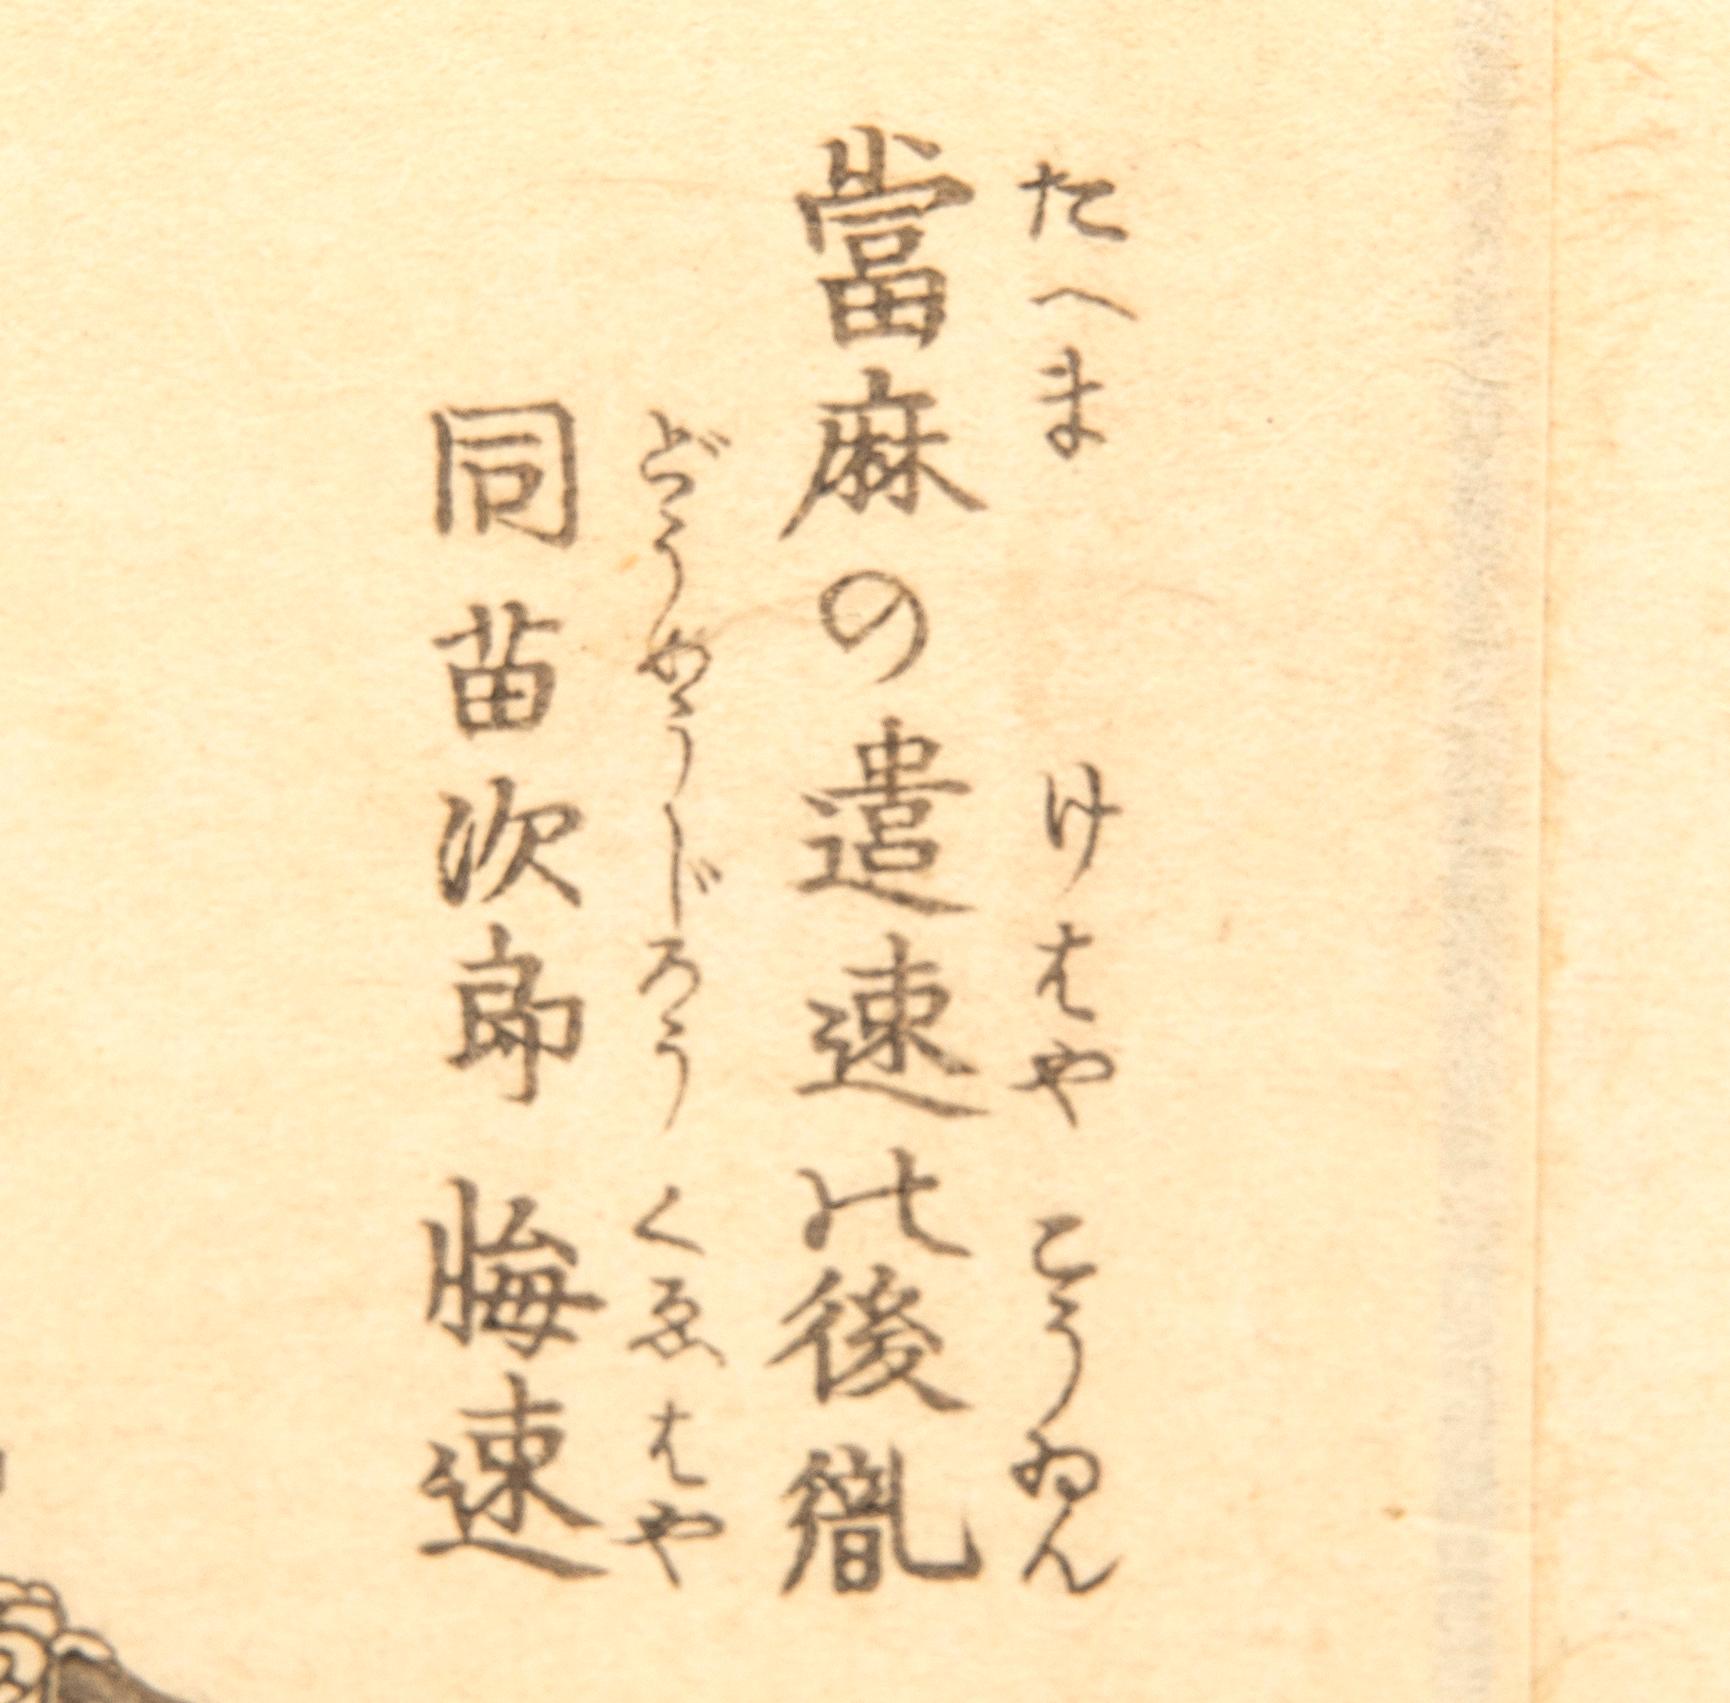 たへま けはや こうゐん
當麻の遣速比後胤
どうめうじろう くゑはや
同苗次郎 悔速